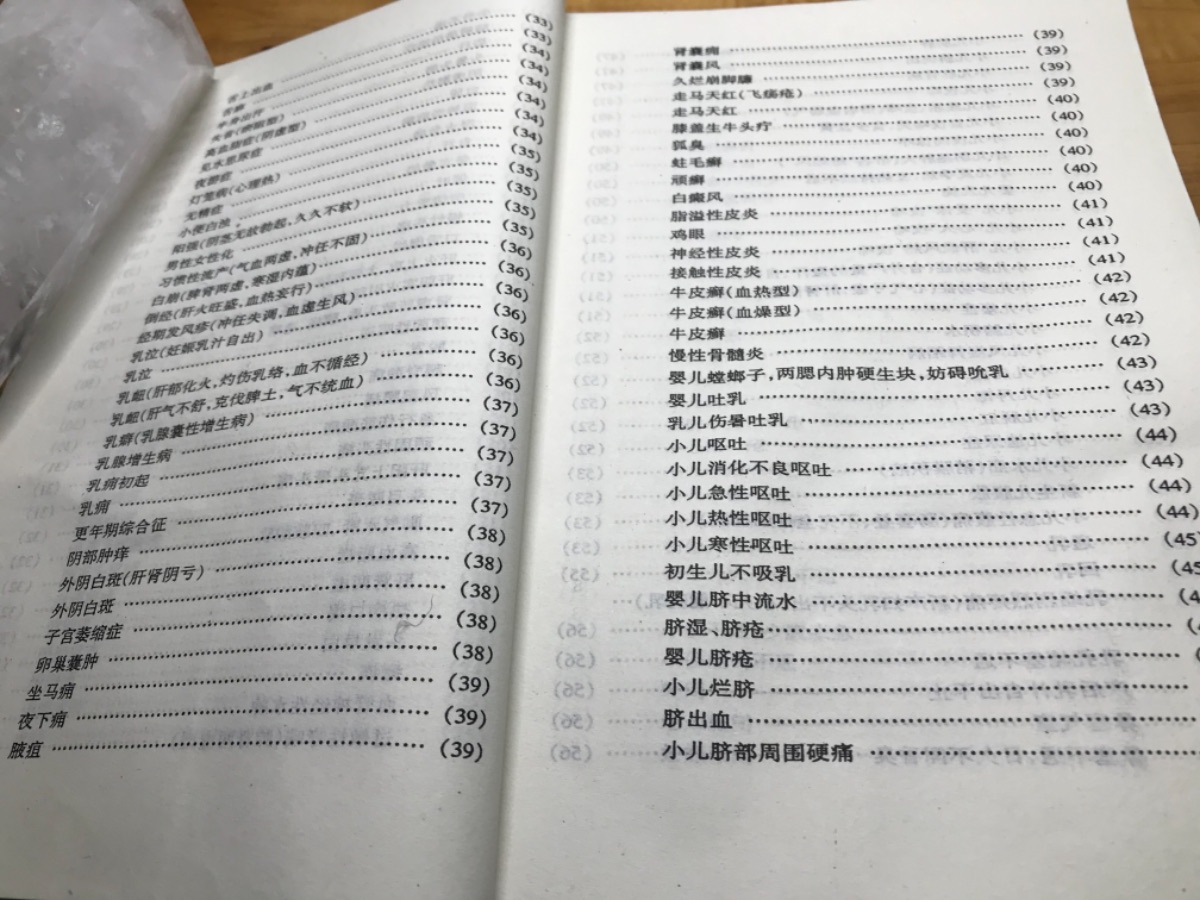 舌上出血 (33)
舌癣 (33)
半身出汗 (34)
失音(痰瘀型) (34)
高血脂症(阴虚型) (34)
见水思尿症 (34)
夜游症 (34)
灯笼病(心理热) (34)
无精症 (35)
小便白浊 (35)
阳强(阴茎无故勃起,久久不软) (35)
男性女性化 (35)
习惯性流产(气血两虚,冲任不固) (35)
白崩(脾肾两虚,寒湿内蕴) (36)
倒经(肝火旺盛,血热妄行) (36)
经期发风疹(冲任失调,血虚生风) (36)
乳泣(妊娠乳汁自出) (36)
乳泣 (36)
乳衄(肝郁化火,灼伤乳络,血不循经) (36)
乳衄(肝气不舒,克伐脾土,气不统血) (36)
乳癖(乳腺囊性增生病) (37)
乳腺增生病 (37)
乳痈初起 (37)
乳痈 (37)
更年期综合征 (37)
阴部肿痒 (38)
外阴白斑(肝肾阴亏) (38)
外阴白斑 (38)
子宫萎缩症 (38)
卵巢囊肿 (38)
坐马痈 (39)
夜下痈 (39)
腋疽 (39)
肾囊痈 (39)
肾囊风 (39)
久烂崩脚臁 (39)
走马天红(飞疡疮) (39)
走马天红 (40)
膝盖生牛头疔 (40)
狐臭 (40)
蛀毛癣 (40)
顽癣 (40)
白癜风 (40)
脂溢性皮炎 (41)
鸡眼 (41)
神经性皮炎 (41)
接触性皮炎 (41)
牛皮癣(血热型) (42)
牛皮癣(血燥型) (42)
牛皮癣 (42)
慢性骨髓炎 (42)
婴儿螳螂子,两腮内肿硬生块,妨碍吮乳 (43)
婴儿吐乳 (43)
乳儿伤暑吐乳 (43)
小儿呕吐 (44)
小儿消化不良呕吐 (44)
小儿急性呕吐 (44)
小儿热性呕吐 (44)
小儿寒性呕吐 (45)
初生儿不吸乳
婴儿脐中流水
脐湿、脐疮
婴儿脐疮
小儿烂脐
脐出血
小儿脐部周围硬痛